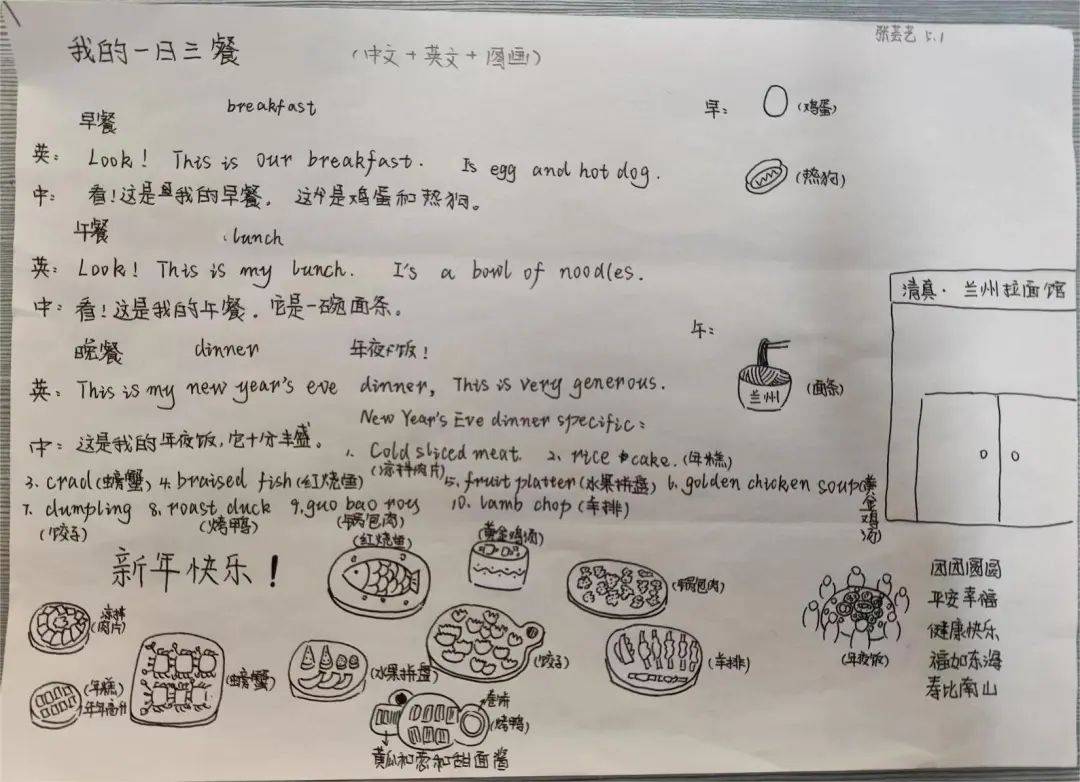 我的一日三餐 (中文+英文+图画) 张芸艺 5.1
早餐 breakfast
英: Look! This is our breakfast. Is egg and hot dog.
中: 看!这是我的早餐。这个是鸡蛋和热狗。
午餐 lunch
英: Look! This is my lunch. I's a bowl of noodles.
中: 看!这是我的午餐。它是一碗面条。
晚餐 dinner 年夜饭!
英: This is my new year's eve dinner, This is very generous.
中: 这是我的年夜饭,它十分丰盛。
New Year's Eve dinner specific:
1. Cold sliced meat. 2. rice cake. (年糕)
(凉拌肉片)
3. crad (螃蟹) 4. braised fish (红烧鱼) 5. fruit platter (水果拼盘) 6. golden chicken soup (黄金鸡汤)
7. dumpling 8. roast duck 9. guo bao rou 10. lamb chop (羊排)
(饺子) (烤鸭) (锅包肉)
新年快乐!
早: (鸡蛋)
(热狗)
午: (面条)
兰州
清真·兰州拉面馆
(红烧鱼)
(黄金鸡汤)
(锅包肉)
凉拌
(肉片)
(年糕)
年年高升
(螃蟹)
(水果拼盘)
(饺子)
(羊排)
(烤鸭)
黄瓜和葱和甜面酱
(年夜饭)
团团圆圆
平安幸福
健康快乐
福如东海
寿比南山